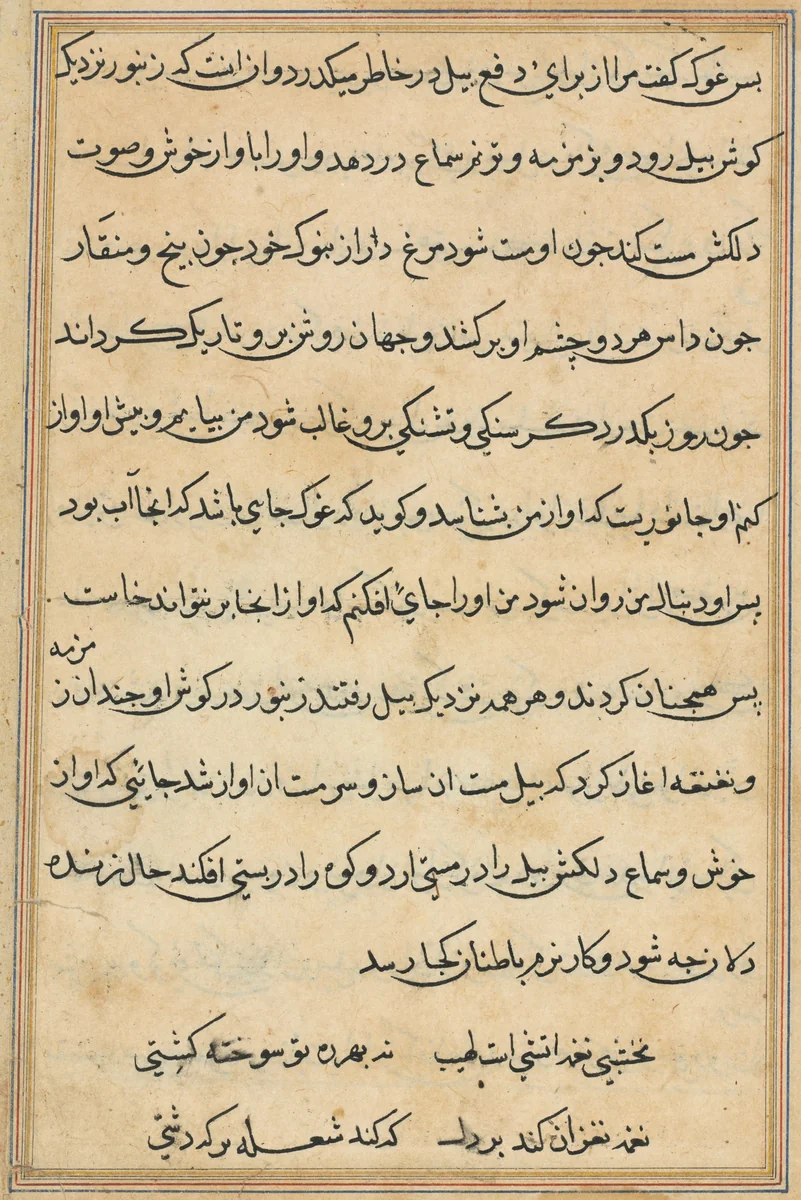 بس غوک کفت مرا از برای دفع بیل در خاطر میکذرد و ان انست که زنبور نزدیک
کوش بیل رود و بزمزمه و ترنم سماع در دهد و او را باواز خوش و صوت
دلکش مست کند جون او مست شود مرغ دراز بنوک خود جون بیخ و منقار
جون داس هر دو چشم او بر کشد و جهان روشن برو تاریک کرداند
جون روز بکذرد کرسنکی و تشنکی برو غالب شود من بیایم و بیش او اواز
کنم او جانوریست که اواز من بشناسد و کوید که غوک جایی باشد که انجا آب بود
پس او دنبال من روان شود من او را جایی افکنم که او از انجا بر نتواند خاست
پس همچنان کردند و هر همه نزدیک بیل رفتند زنبور در کوش او جندان زمزمه
و نغنغه اغاز کرد که بیل مست ان ساز و سرمست ان اواز شد جائیی که اواز
خوش و سماع دلکش بیل را در مستی ارد و کوه را در بستی افکند حال زنده
دلان جه شود و کار نرم باطنان کجا رسد
نخشبی نغمه اتشی است لهیب ند بهره تو سوخته کشیتی
نغمه نغزان کند بر دل که کند شعله بر که دشتی